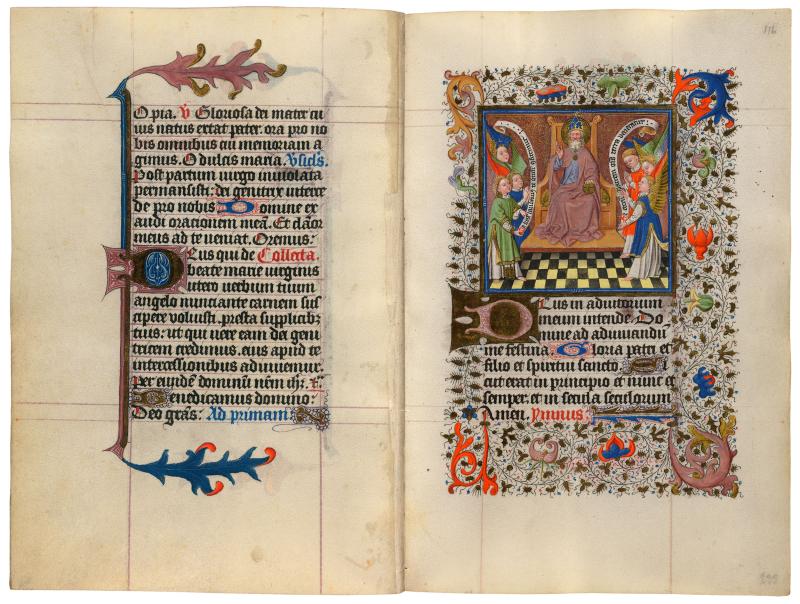 O pia. V Gloriosa dei mater cu
ius natus extat pater. ora pro no
bis omnibus qui memoriam a
gimus. O dulcis maria. Vsicls.
Post partum uirgo inuiolata
permansisti: dei genitrix interce
de pro nobis Domine ex
audi orationem meā. Et clāor
meus ad te ueniat. Oremus:
Deus qui de Collecta.
beate marie uirginis
utero uerbum tuum
angelo nunciante carnem sus
cipere voluisti. presta supplicibz
tuis: ut qui uere eam dei geni
tricem credimus. eius apud te
intercessionibus adiuuemur.
Per eundē dominū nrm V.
Benedicamus domino:
Deo grās: Ad primam:
116
Deus in adiutorium
meum intende. Do
mine ad adiuuandū
me festina. Gloria patri et
filio et spiritui sancto. Si
cut erat in principio et nunc et
semper. et in secula seculorum
Amen. Ymnus: